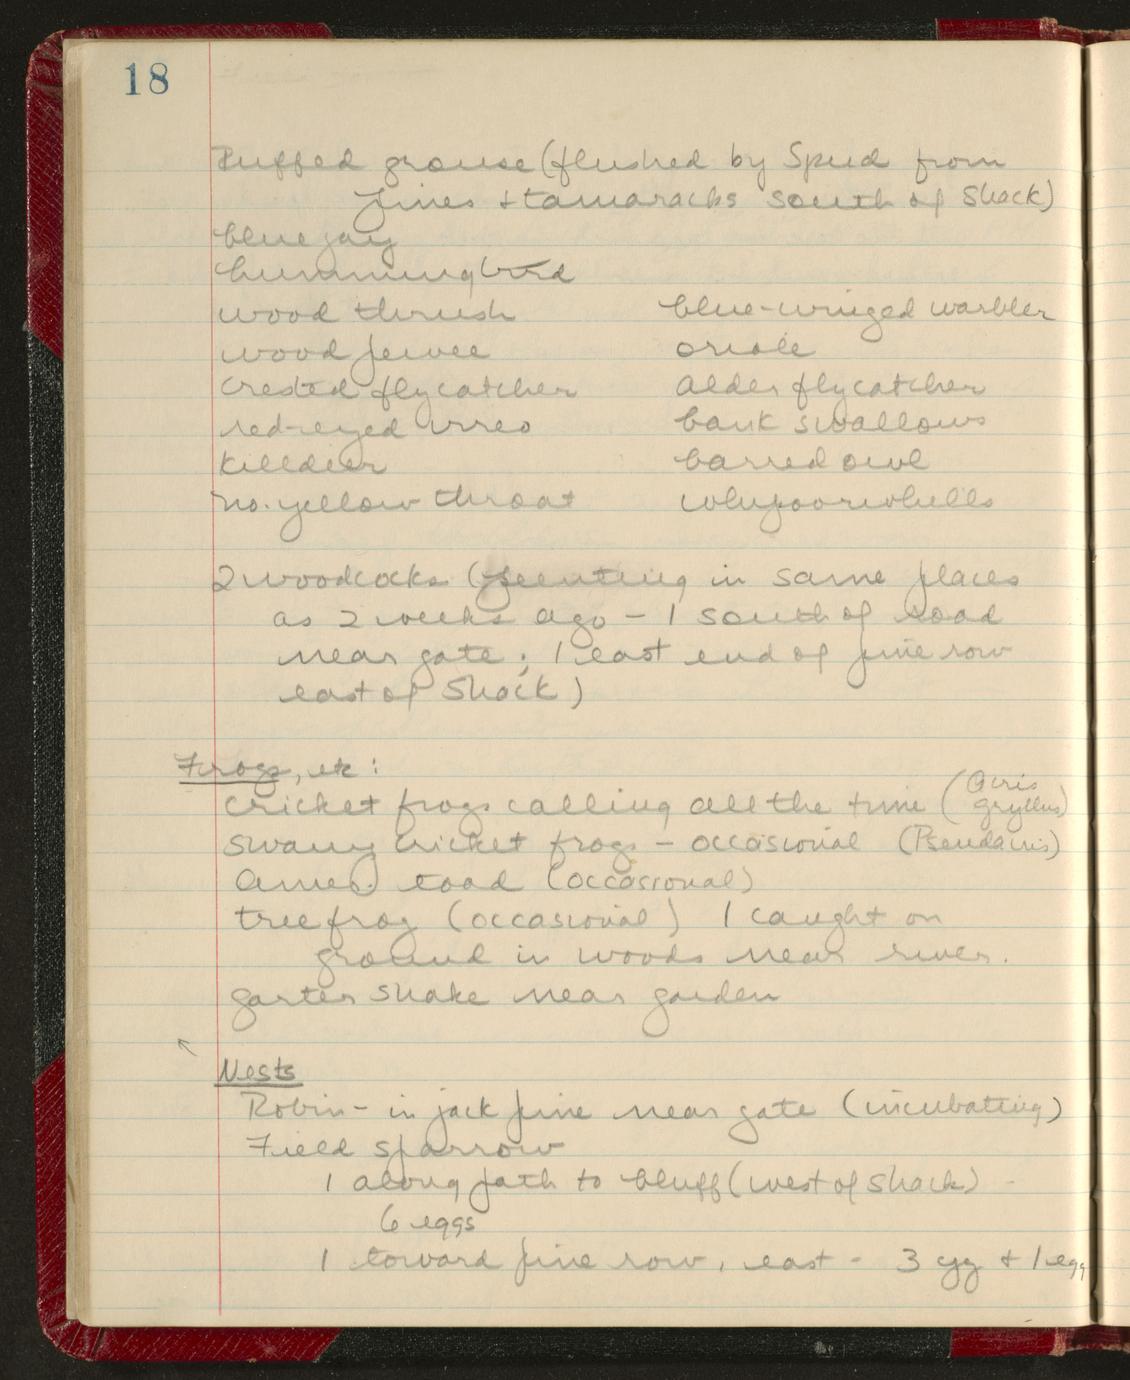 18
Ruffed grouse (flushed by Spud from
pines & tamaracks south of Shack)
blue jay
hummingbird
wood thrush blue-winged warbler
wood pewee oriole
crested flycatcher alder flycatcher
red-eyed vireo bank swallows
killdeer barred owl
no. yellow throat whippoorwhills
2 woodcocks (peenting in same places
as 2 weeks ago - 1 south of road
near gate; 1 east end of pine row
east of Shack)
Frogs, etc:
cricket frogs calling all the time (Acris
gryllus)
swamp cricket frogs - occasional (Pseudacris)
Amer. toad (occasional)
tree frog (occasional) 1 caught on
ground in woods near river.
garter snake near garden
Nests
Robin - in jack pine near gate (incubating)
Field sparrow
1 along path to bluff (west of Shack) -
6 eggs
1 toward pine row, east - 3 yg & 1 egg